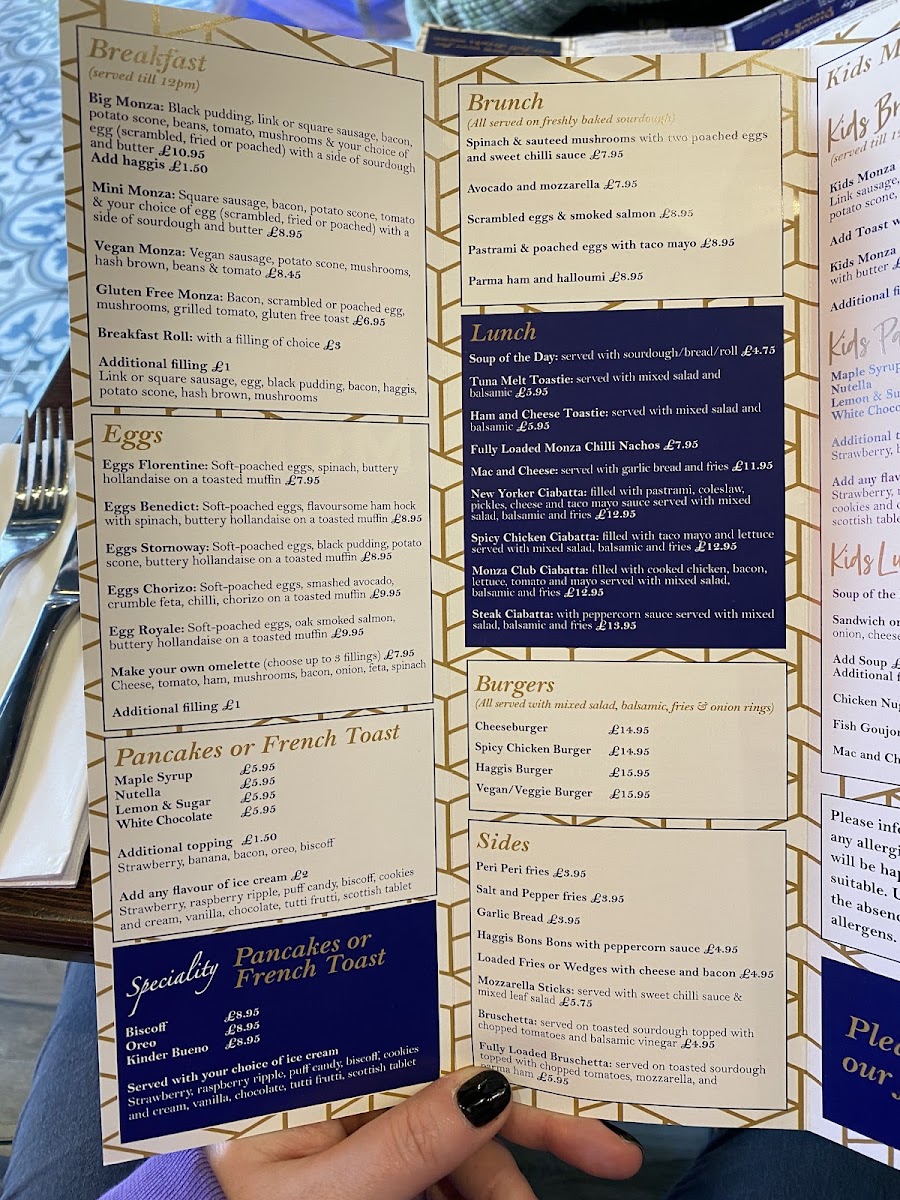 Breakfast
(served till 12pm)
Big Monza: Black pudding, link or square sausage, bacon,
potato scone, beans, tomato, mushrooms & your choice of
egg (scrambled, fried or poached) with a side of sourdough
and butter £10.95
Add haggis £1.50
Mini Monza: Square sausage, bacon, potato scone, tomato
& your choice of egg (scrambled, fried or poached) with a
side of sourdough and butter £8.95
Vegan Monza: Vegan sausage, potato scone, mushrooms,
hash brown, beans & tomato £8.45
Gluten Free Monza: Bacon, scrambled or poached egg,
mushrooms, grilled tomato, gluten free toast £6.95
Breakfast Roll: with a filling of choice £3
Additional filling £1
Link or square sausage, egg, black pudding, bacon, haggis,
potato scone, hash brown, mushrooms
Eggs
Eggs Florentine: Soft-poached eggs, spinach, buttery
hollandaise on a toasted muffin £7.95
Eggs Benedict: Soft-poached eggs, flavoursome ham hock
with spinach, buttery hollandaise on a toasted muffin £8.95
Eggs Stornoway: Soft-poached eggs, black pudding, potato
scone, buttery hollandaise on a toasted muffin £8.95
Eggs Chorizo: Soft-poached eggs, smashed avocado,
crumble feta, chilli, chorizo on a toasted muffin £9.95
Egg Royale: Soft-poached eggs, oak smoked salmon,
buttery hollandaise on a toasted muffin £9.95
Make your own omelette (choose up to 3 fillings) £7.95
Cheese, tomato, ham, mushrooms, bacon, onion, feta, spinach
Additional filling £1
Pancakes or French Toast
Maple Syrup £5.95
Nutella £5.95
Lemon & Sugar £5.95
White Chocolate £5.95
Additional topping £1.50
Strawberry, banana, bacon, oreo, biscoff
Add any flavour of ice cream £2
Strawberry, raspberry ripple, puff candy, biscoff, cookies
and cream, vanilla, chocolate, tutti frutti, scottish tablet
Speciality Pancakes or
French Toast
Biscoff £8.95
Oreo £8.95
Kinder Bueno £8.95
Served with your choice of ice cream
Strawberry, raspberry ripple, puff candy, biscoff, cookies
and cream, vanilla, chocolate, tutti frutti, scottish tablet
Brunch
(All served on freshly baked sourdough)
Spinach & sauteed mushrooms with two poached eggs
and sweet chilli sauce £7.95
Avocado and mozzarella £7.95
Scrambled eggs & smoked salmon £8.95
Pastrami & poached eggs with taco mayo £8.95
Parma ham and halloumi £8.95
Lunch
Soup of the Day: served with sourdough/bread/roll £4.75
Tuna Melt Toastie: served with mixed salad and
balsamic £5.95
Ham and Cheese Toastie: served with mixed salad and
balsamic £5.95
Fully Loaded Monza Chilli Nachos £7.95
Mac and Cheese: served with garlic bread and fries £11.95
New Yorker Ciabatta: filled with pastrami, coleslaw,
pickles, cheese and taco mayo sauce served with mixed
salad, balsamic and fries £12.95
Spicy Chicken Ciabatta: filled with taco mayo and lettuce
served with mixed salad, balsamic and fries £12.95
Monza Club Ciabatta: filled with cooked chicken, bacon,
lettuce, tomato and mayo served with mixed salad,
balsamic and fries £12.95
Steak Ciabatta: with peppercorn sauce served with mixed
salad, balsamic and fries £13.95
Burgers
(All served with mixed salad, balsamic, fries & onion rings)
Cheeseburger £14.95
Spicy Chicken Burger £14.95
Haggis Burger £15.95
Vegan/Veggie Burger £15.95
Sides
Peri Peri fries £3.95
Salt and Pepper fries £3.95
Garlic Bread £3.95
Haggis Bons Bons with peppercorn sauce £4.95
Loaded Fries or Wedges with cheese and bacon £4.95
Mozzarella Sticks: served with sweet chilli sauce &
mixed leaf salad £5.75
Bruschetta: served on toasted sourdough topped with
chopped tomatoes and balsamic vinegar £4.95
Fully Loaded Bruschetta: served on toasted sourdough
topped with chopped tomatoes, mozzarella, and
parma ham £5.95
Kids M
Kids Br
(served till 1
Kids Monza
Link sausage,
potato scone,
Add Toast w
Kids Monza
with butter £
Additional fi
Kids Pa
Maple Syrup
Nutella
Lemon & Su
White Choco
Additional t
Strawberry, b
Add any flav
Strawberry, r
cookies and c
scottish table
Kids Lu
Soup of the
Sandwich or
onion, cheese
Add Soup £
Additional f
Chicken Nug
Fish Goujon
Mac and Ch
Please info
any allergi
will be hap
suitable. U
the absenc
allergens.
Plea
our